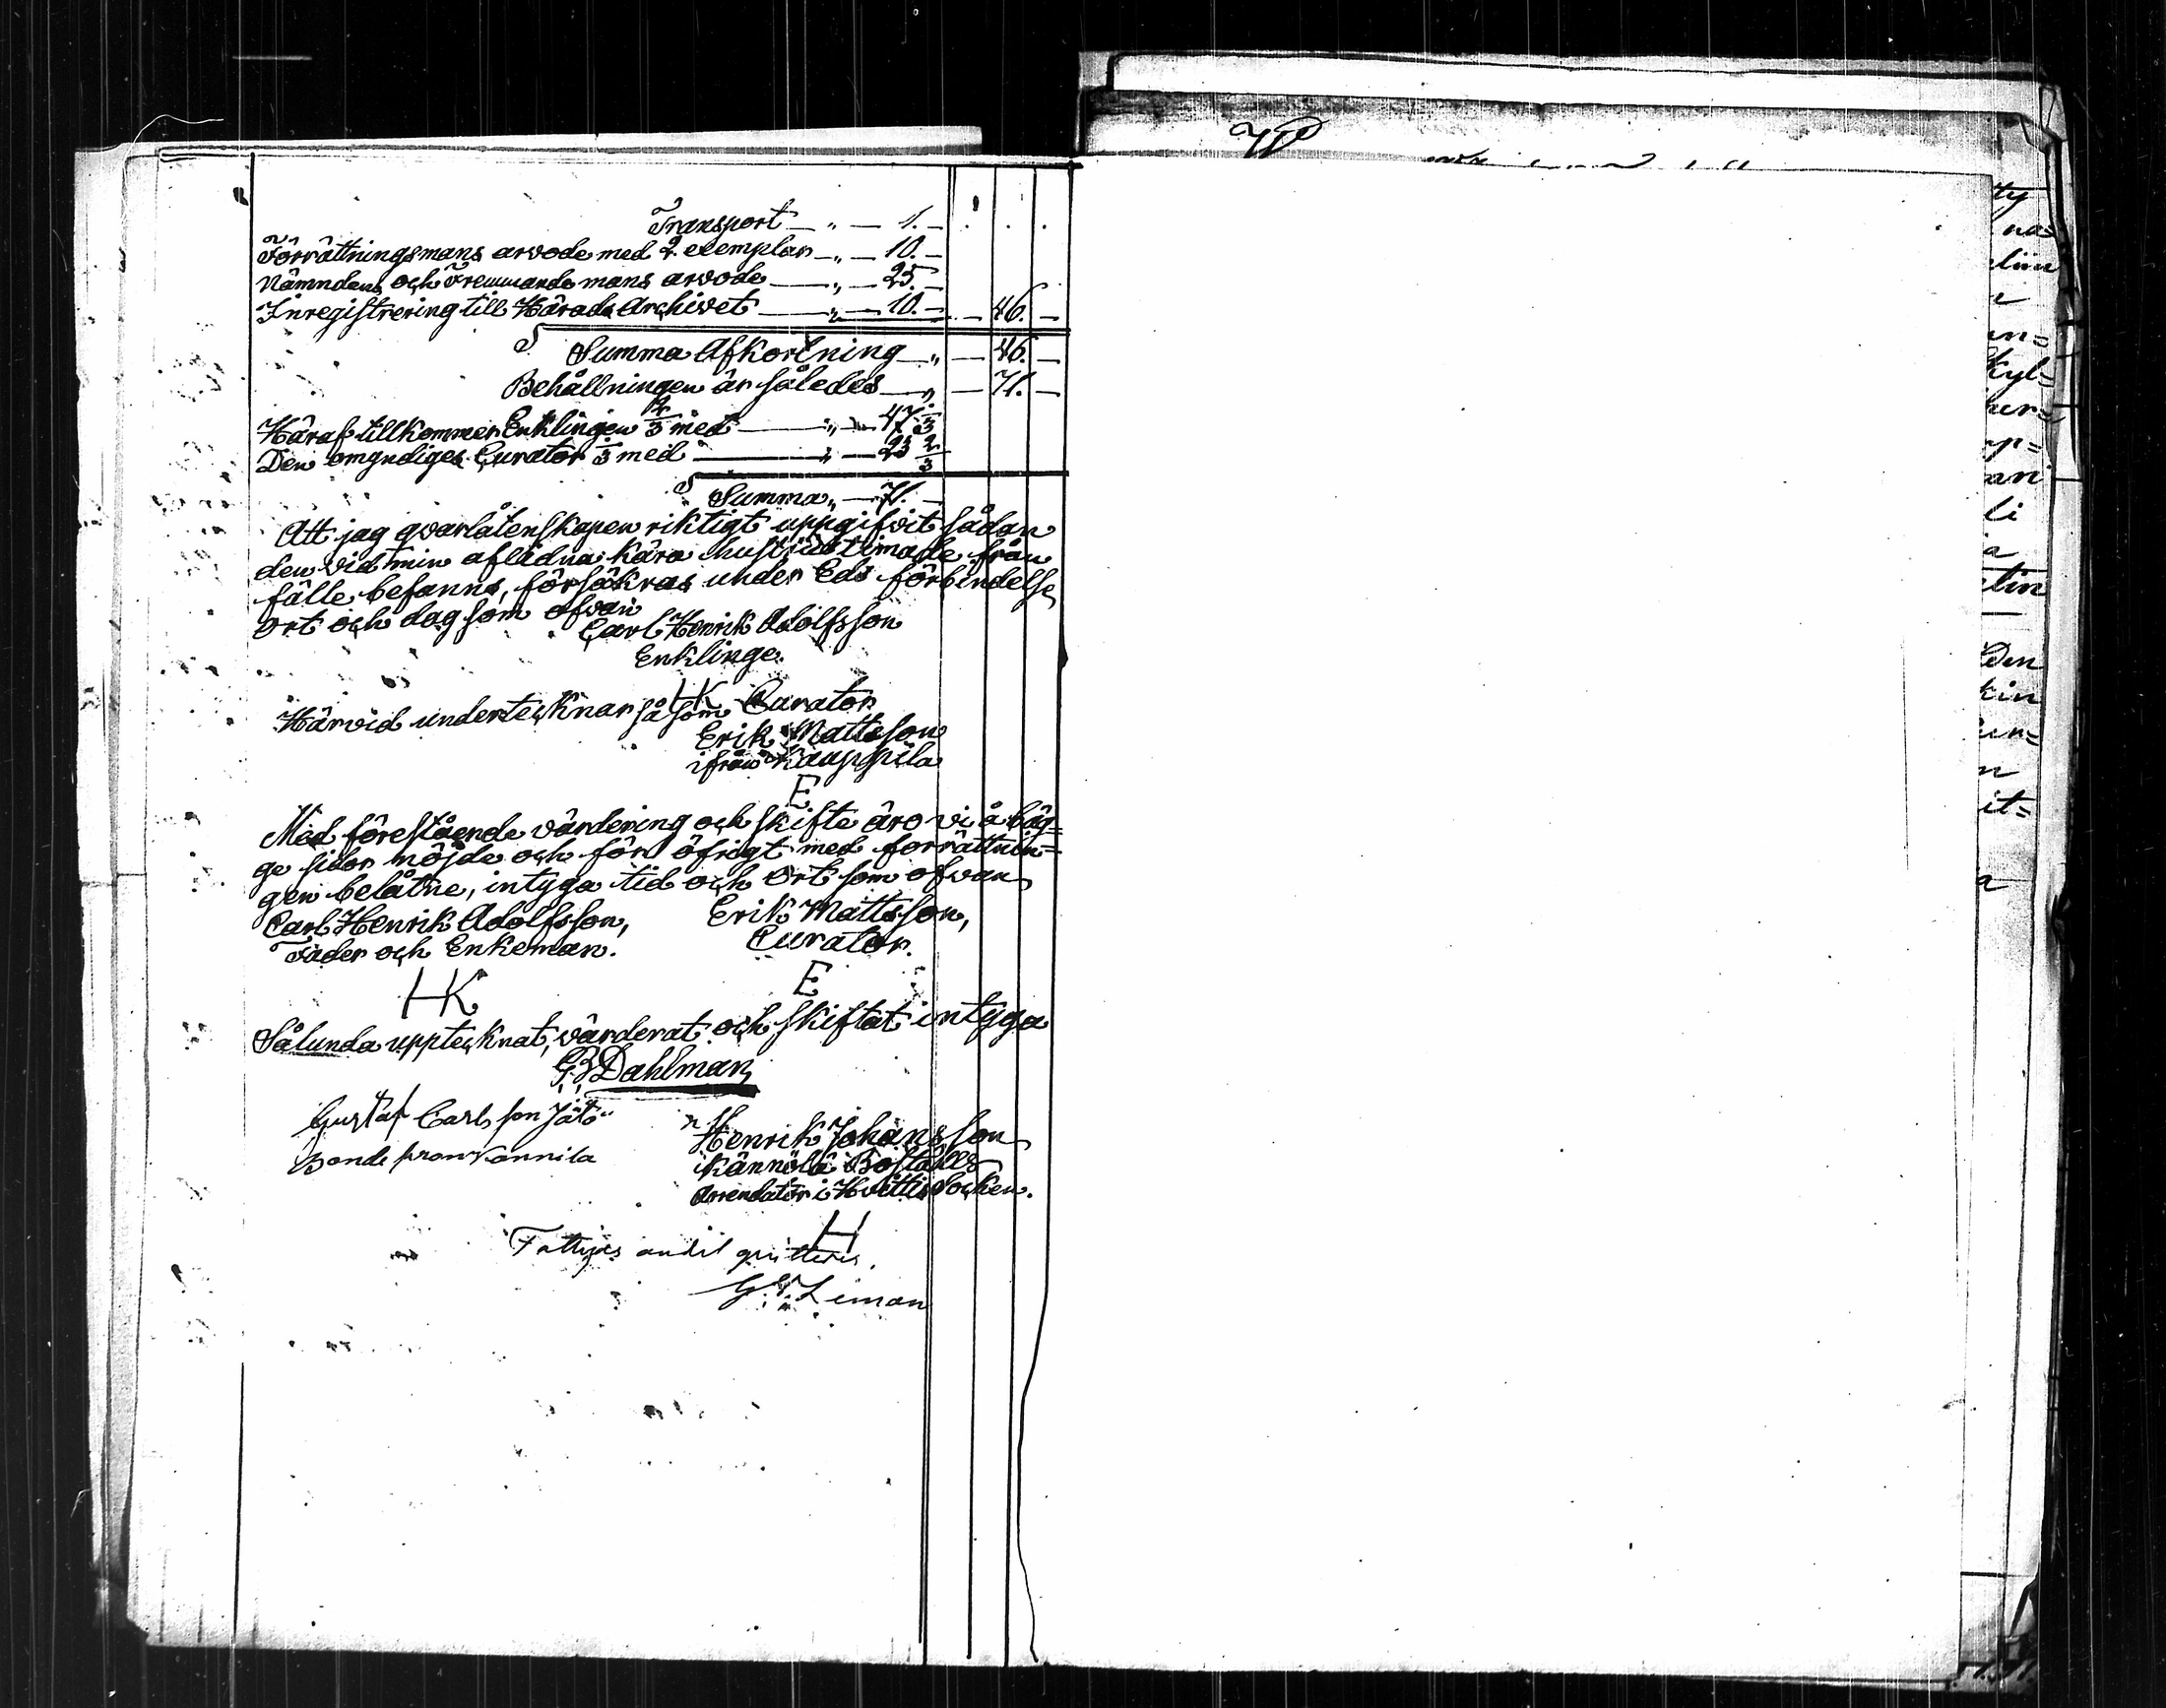 Transport — „ — 1. —
Förrättningsmans arvode med 2 exemplar — „ — 10. —
Nämndens och Fremmande mans arvode — „ — 25. —
Inregistrering till Härads Archivet — „ — 10. — — 46. —
S Summa Afkortning — „ — 46. —
Behållningen är således — „ — 71. —
Häraf tillkommer Enklingen 2/3 med — „ — 47 1/3
Den omyndiges Curator 1/3 med — „ — 23 2/3
S Summa „ — 71. —
Att jag qvarlåtenskapen riktigt uppgifvit sådan
den vid min aflidna kära hustrus timade från
fälle befanns, försäkras under Eds förbindelse
ort och dag som ofvan
Carl Henrik Adolfsson
Enklinge.
HK
Härvid undertecknar såsom Curator
Erik Mattsson
ifrån Kauppila
E
Med förestående värdering och skifte äro vi å bäg=
ge sidor nöjde och för öfrigt med förrättnin=
gen belåtne, intyga tid och Ort som ofvan
Carl Henrik Adolfsson, Erik Mattsson,
Fader och Enkeman. Curator.
HK E
Sålunda uppteknat, värderat och skiftat intyga
G Dahlman
Gustaf Carlsson
Henrik Johansson
Bonde från Kannila
Boställs
Arrendator i Hvittis Socken.
H
Fattigas andel quitteras.
Liman
ty
na=
liin
un=
Kyl=
per=
up=
an
li
a
tin
Den
kin
un=
n
it=
a